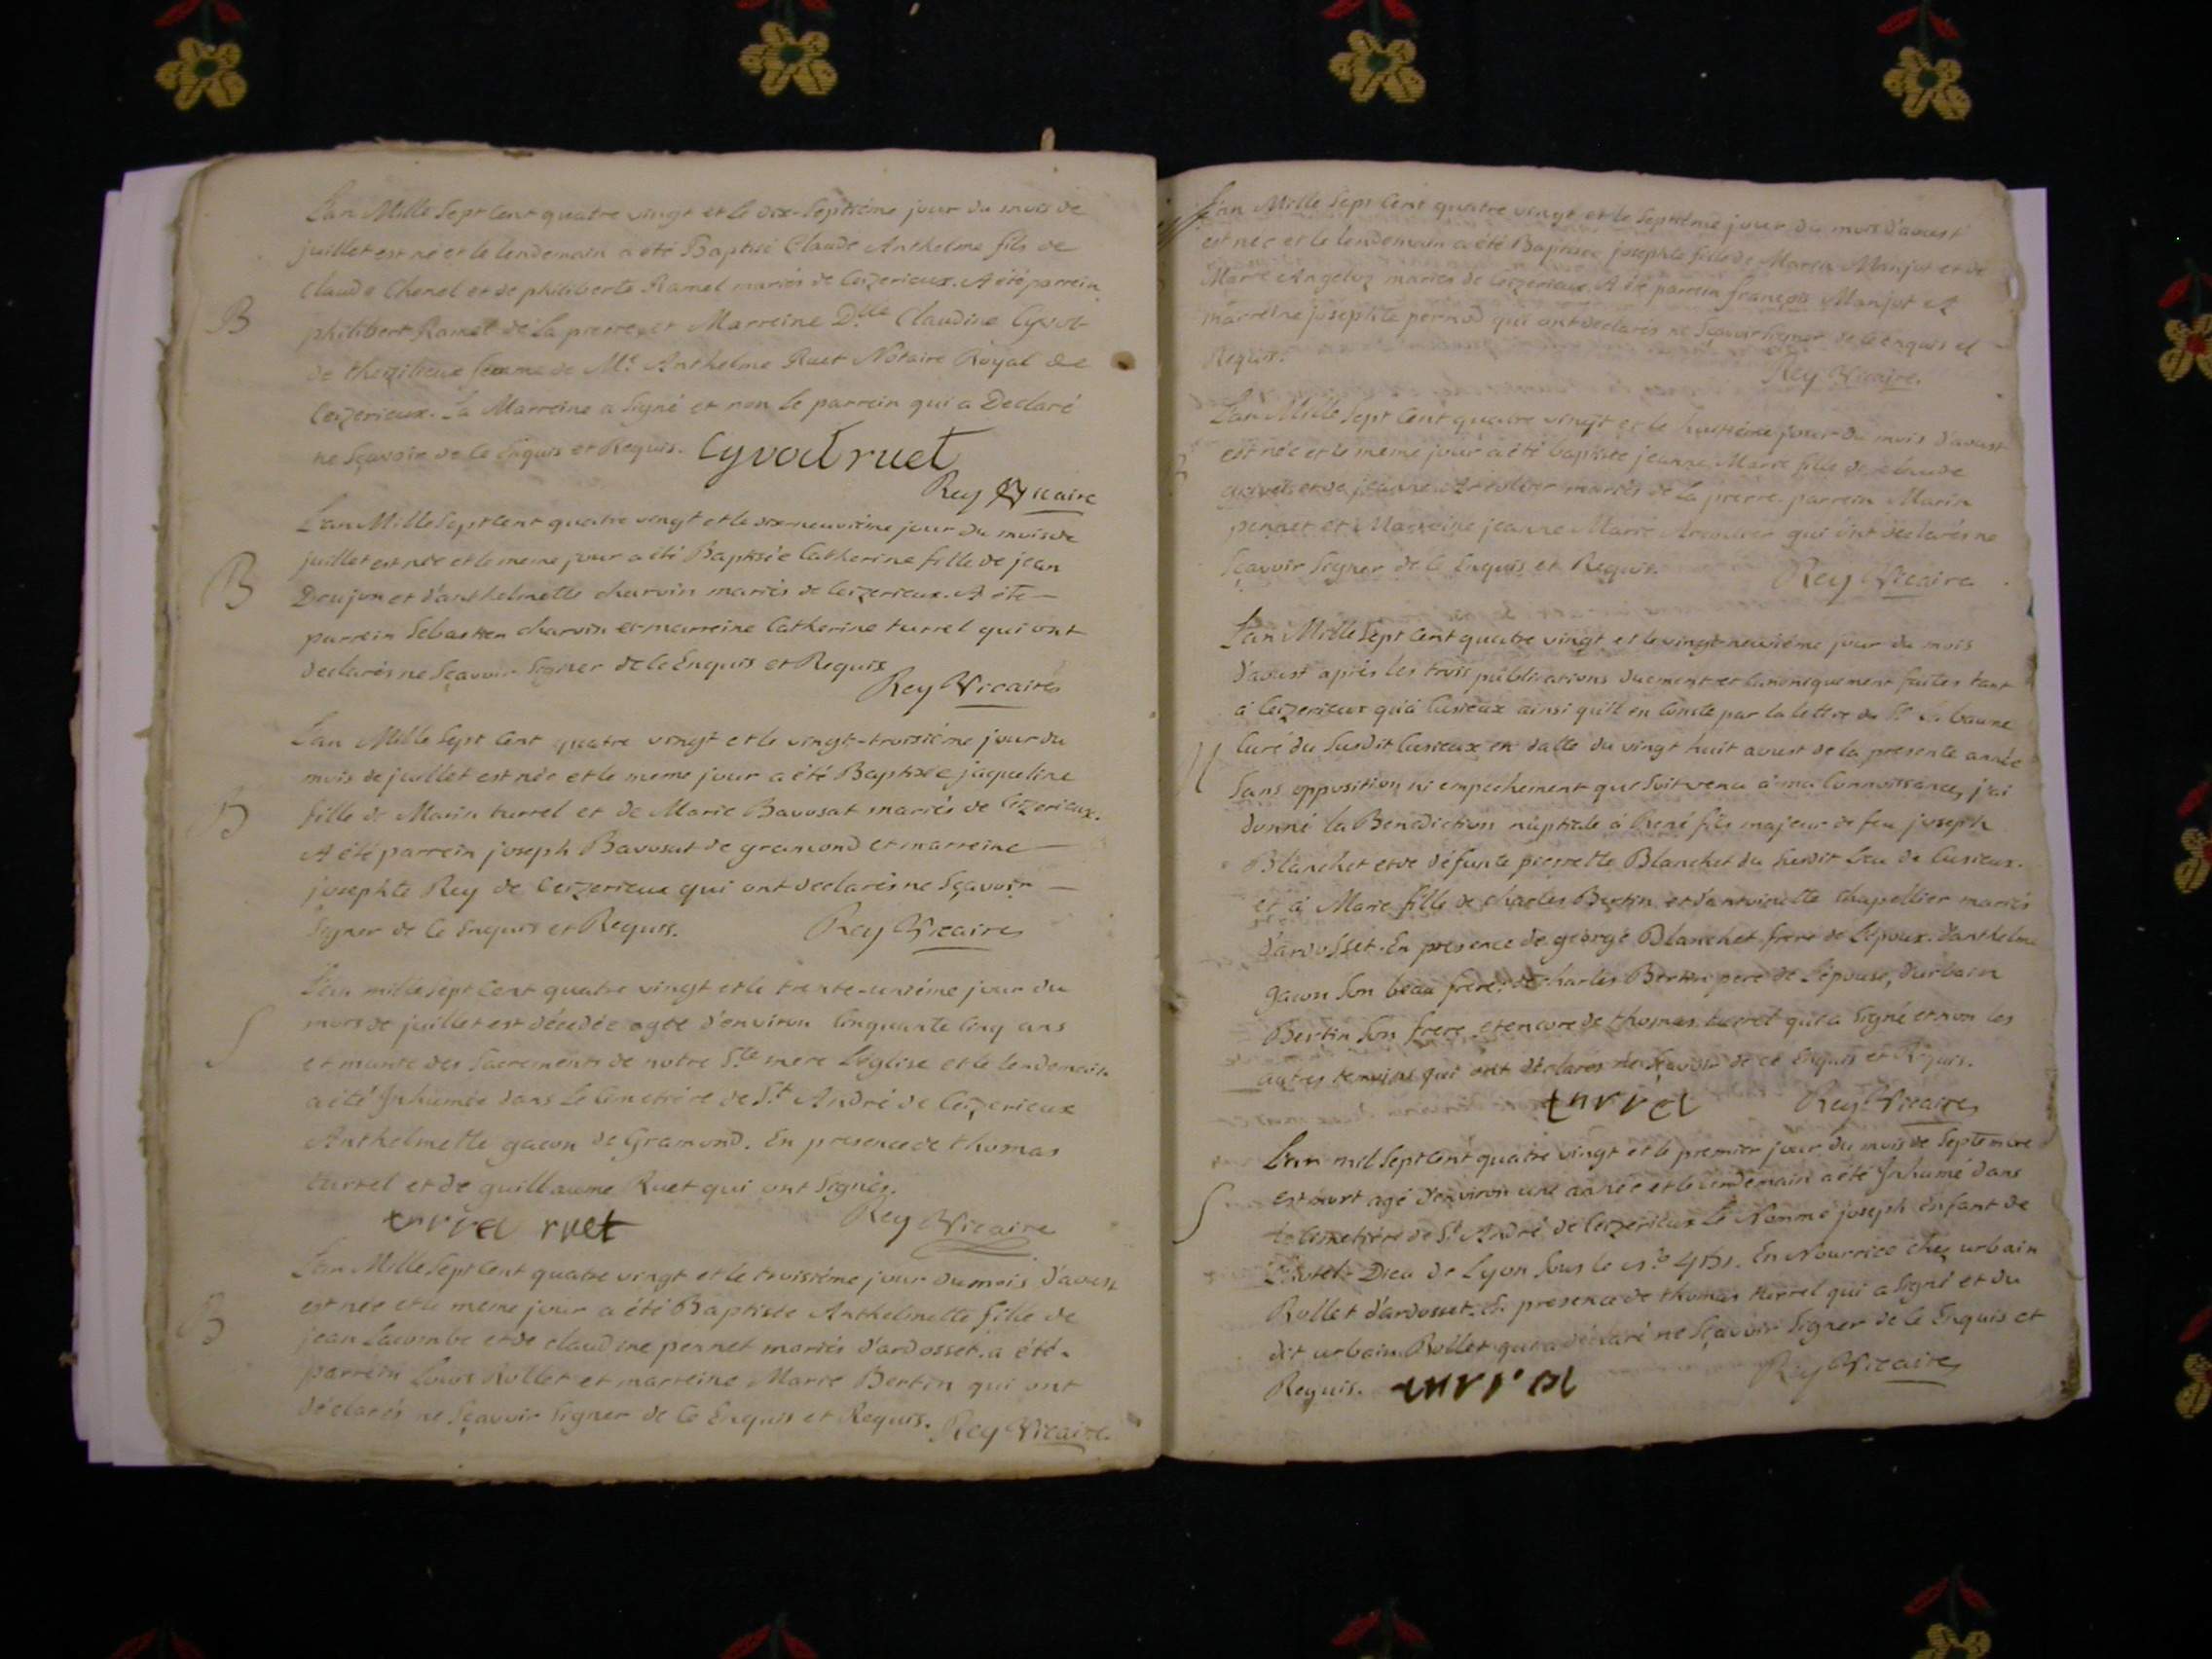 L'an Mille Sept Cent quatre vingt et le dix-Septiéme jour du mois de
juillet est né et le lendemain a été Baptisé Claude Anthelme fils de
Claude Chenel et de philiberte Ramel mariés de Ceizerieux. A été parrein
B
philibert Ramel de La pierre et Marreine D.lle Claudine Cyvot
de femme de M.e Anthelme Ruet Notaire Royal de
Ceizerieux. La Marreine a Signé et non le parrein qui a Declaré
ne Sçavoir de Ce Enquis et Requis. Cyvoct ruet
Rey Vicaire
L'an Mille Sept Cent quatre vingt et le dix-neuviéme jour du mois de
juillet est née et le meme jour a été Baptisée Catherine fille de jean
B
Doujon et d'anthelmette charvin mariés de Ceizerieux. A été
parrein Sebastien charvin et marreine Catherine turrel qui ont
declarés ne Sçavoir Signer de Ce Enquis et Requis
Rey Vicaire
L'an Mille Sept Cent quatre vingt et le vingt-troisiéme jour du
mois de juillet est née et le meme jour a été Baptisée jaqueline
B
fille de Marin turrel et de Marie Bavosat mariés de Ceizerieux.
A été parrein joseph Bavosat de gramond et marreine
josephte Rey de Ceizerieux qui ont declarés ne Sçavoir
Signer de Ce Enquis et Requis. Rey Vicaire
L'an mille Sept Cent quatre vingt et le trente-uniéme jour du
S
mois de juillet est décedée agée d'environ Cinquante Cinq ans
et munie des Sacrements de notre S.te mere L'église et le lendemain
a été Inhumée dans Le Cimetiére de S.t André de Ceizerieux
Anthelmette gacon de Gramond. En presence de thomas
turrel et de guillaume Ruet qui ont Signés.
turrel ruet Rey Vicaire
L'an Mille Sept Cent quatre vingt et le troisiéme jour du mois d'avust
est née et le meme jour a été Baptisée Anthelmette fille de
B
jean Lacombe et de claudine pennet mariés d'ardosset. a été
parrein Louis Rollet et marreine Marie Bertin qui ont
déclarés ne Sçavoir Signer de Ce Enquis et Requis. Rey Vicaire.
L'an Mille Sept Cent quatre vingt et le Septiéme jour du mois d'avust
est née et le lendemain a été Baptisée josephte fille de Manjot et de
Marie mariés de Ceizerieux. A été parrein françois Manjot et
marreine josephte pernod qui ont declarés ne Sçavoir Signer de Ce Enquis et
Requis.
Rey Vicaire.
L'an Mille Sept Cent quatre vingt et le huitiéme jour du mois d'avust
est née et le meme jour a été baptisée jeanne Marie fille de claude
et de jeanne mariés de La pierre. parrein Marin
pennet et Marreine jeanne Marie qui ont declarés ne
Sçavoir Signer de Ce Enquis et Requis. Rey Vicaire
L'an Mille Sept Cent quatre vingt et le vingt-neuviéme jour du mois
d'avust aprés les trois publications duement et Canoniquement faites tant
à Ceizerieux qu'à Cusieux ainsi qu'il en Conste par la lettre du S.r La baume
Curé du Susdit Cusieux en datte du vingt huit avust de la presente année
M
Sans opposition ni empechement que Soit venu à ma Connoissance, j'ai
donné la Benediction nuptiale à René fils majeur de feu joseph
Blanchet et de défunte pierrette Blanchet du Susdit Lieu de Cusieux.
et à Marie fille de charles Bertin et d'antoinette chapellier mariés
d'ardosset. En presence de george Blanchet frere de L'epoux. d'anthelme
gacon Son beau frere. de charles Bertin pere de L'épouse, d'urbain
Bertin Son frere, et encore de thomas turrel qui a Signé et non les
autres temoins qui ont declarés ne Sçavoir de ce Enquis et Requis.
turrel Rey Vicaire
L'an mil Sept Cent quatre vingt et le premier jour du mois de Septembre
est mort agé d'environ une année et le lendemain a été Inhumé dans
S
le Cimetiére de S.t André de Ceizerieux Le Nommé joseph Enfant de
L'hotel-Dieu de Lyon Sous le n.o En Nourrice chez urbain
Rollet d'ardosset. En presence de thomas turrel qui a Signé et du
dit urbain Rollet qui a déclaré ne Sçavoir Signer de Ce Enquis et
Requis. turrel Rey Vicaire